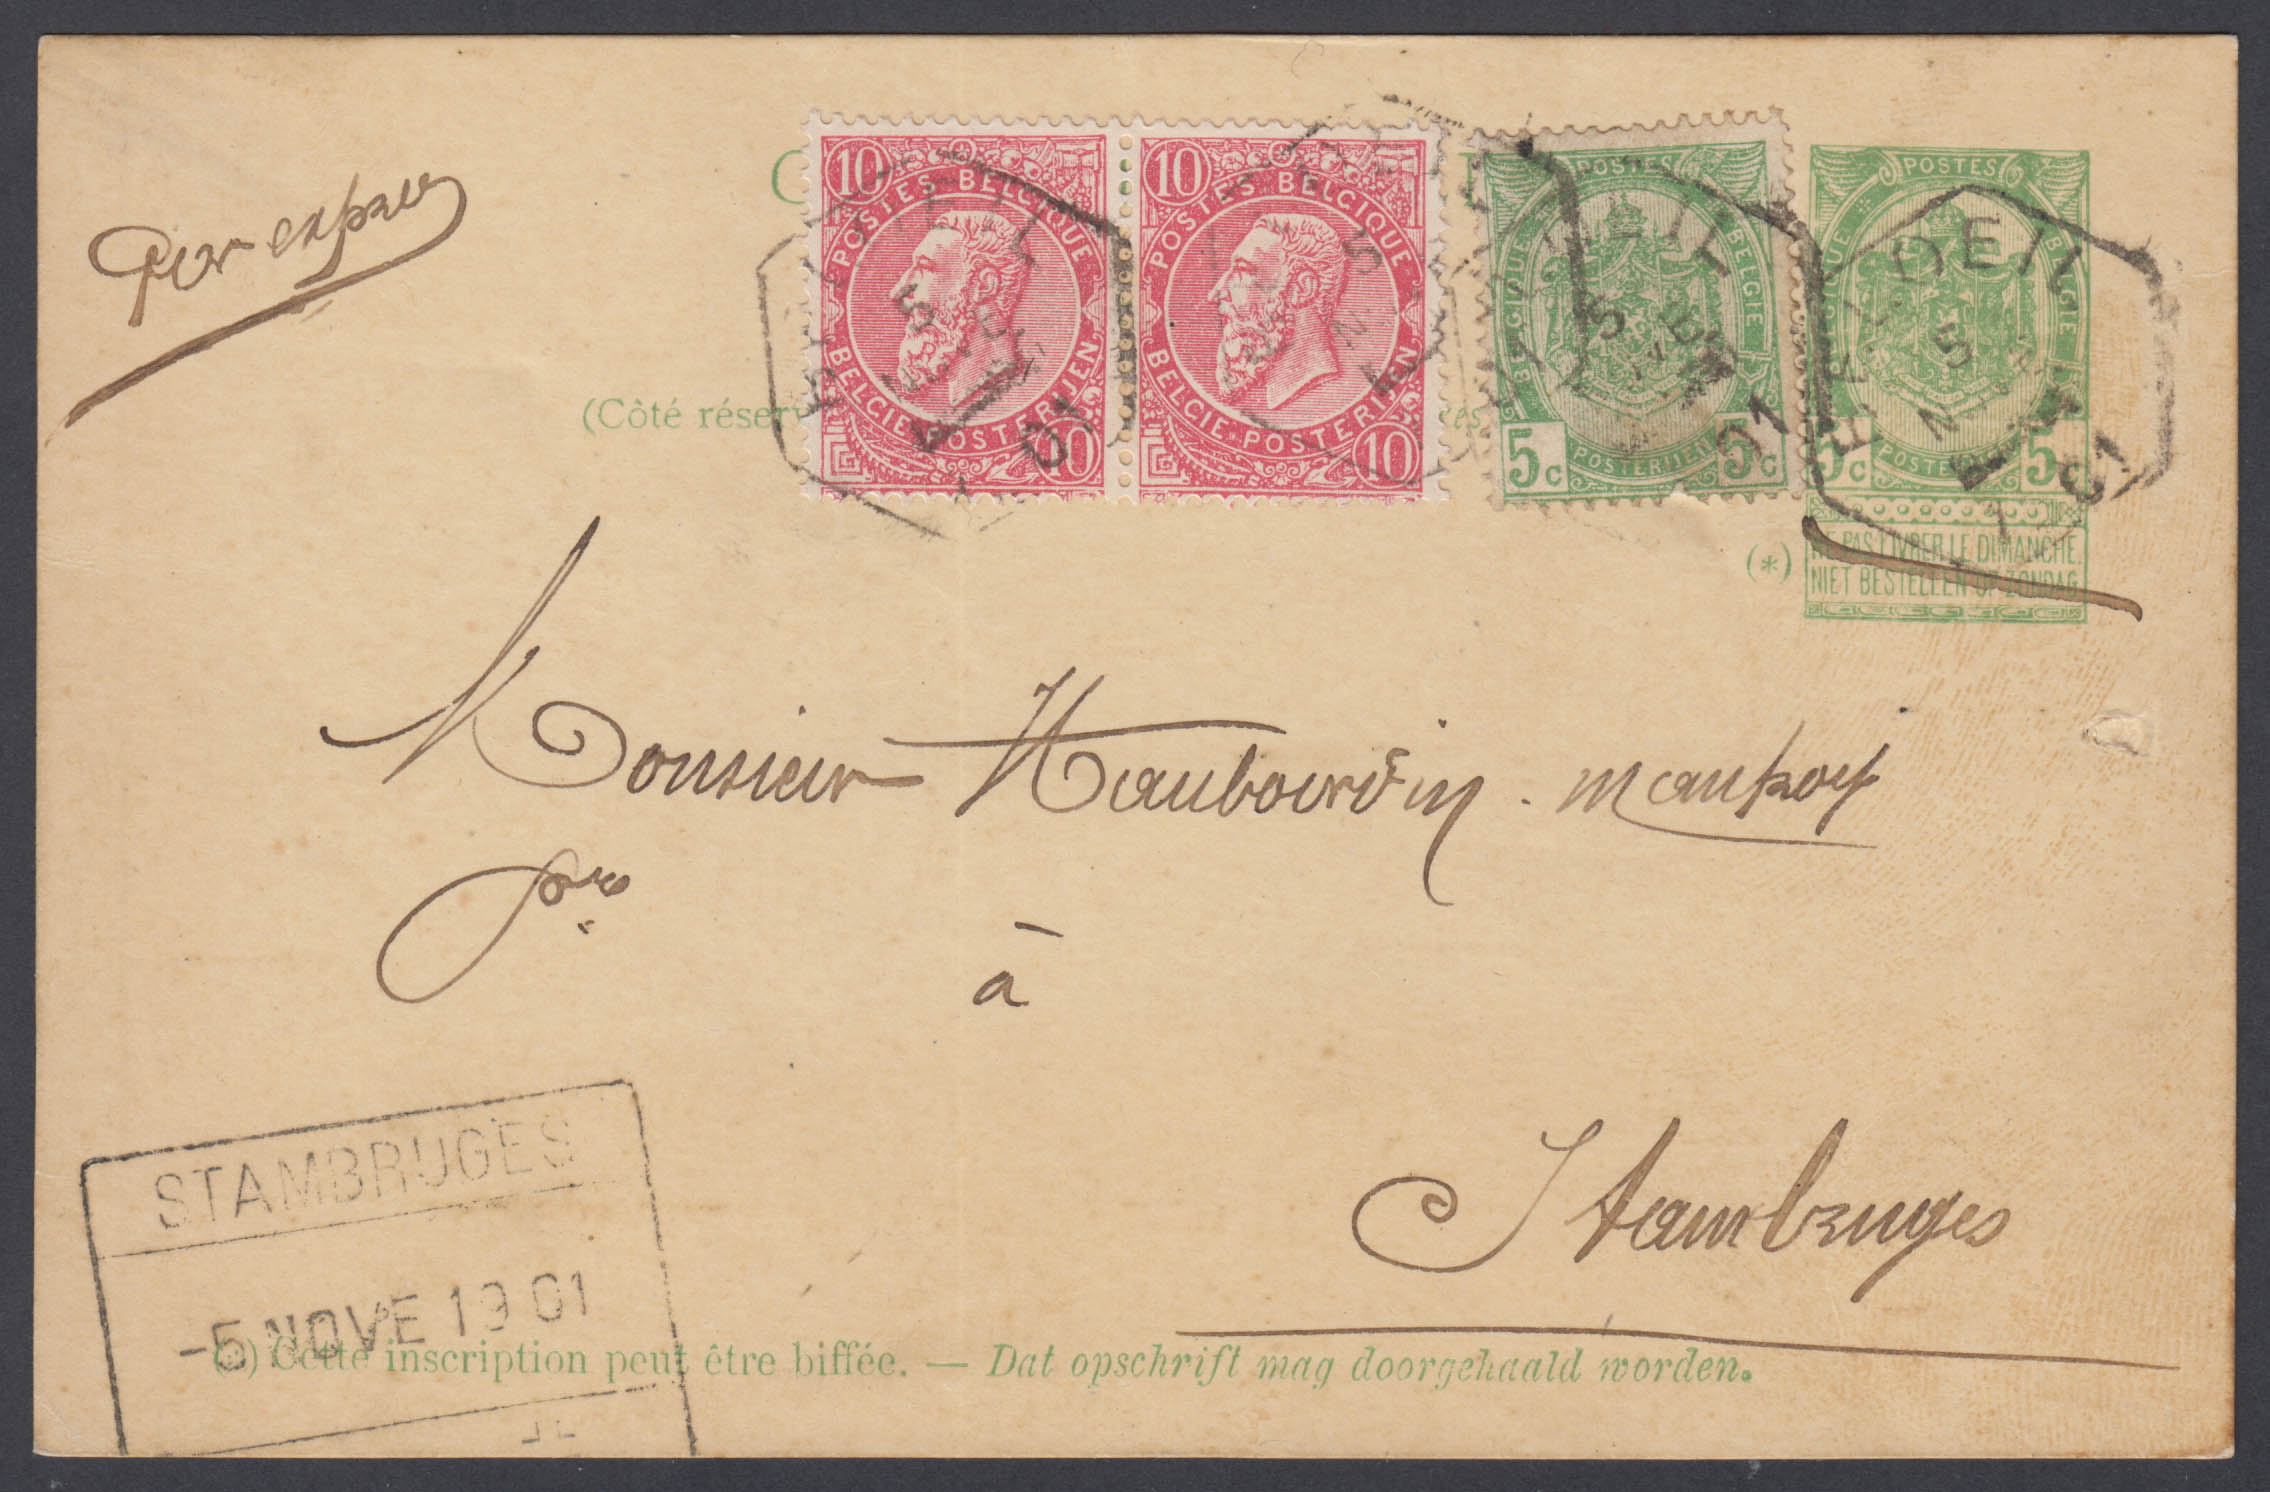 Par exprès
C
10 10
POSTES BELGIQUE
BELGIE POSTERIJEN
10
10 10
POSTES BELGIQUE
BELGIE POSTERIJEN
10
POSTES
BELGIQUE BELGIE
5c POSTERIJEN 5c
POSTES
BELGIE
5c POSTERIJEN 5c
5
01
(Côté réser
(*)
NE PAS LIVRER LE DIMANCHE.
NIET BESTELLEN OP ZONDAG
Monsieur Haubourdin
à
Stambruges
STAMBRUGES
-5 NOVE 1901
(*) Cette inscription peut être biffée. — Dat opschrift mag doorgehaald worden.